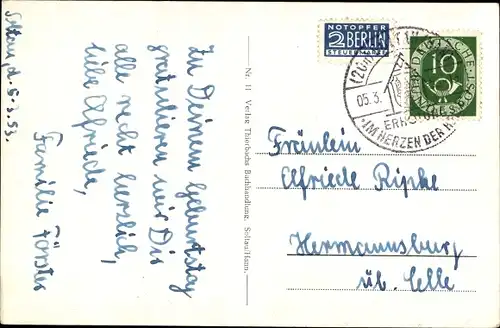 Soltau, d. 5.3.53.
Zu Deinem Geburtstag
gratulieren wir Dir
alle recht herzlich,
liebe Afriede,
Familie Förster
Nr. 11 Verlag Thierbachs Buchhandlung, Soltau/Hann.
NOTOPFER
2 BERLIN
STEUERMARKE
05.3.
IM HERZEN DER
DEUTSCHE
10
BUNDESPOST
Fräulein
Afriede Ripke
Hermannsburg
üb. Celle